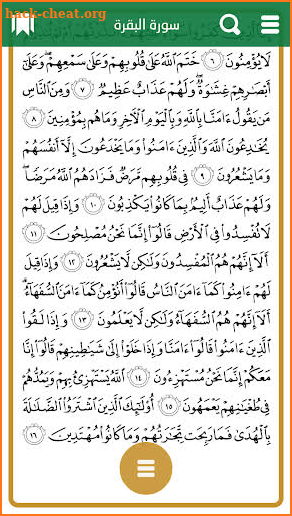 سورة البقرة
لَا يُؤْمِنُونَ ٦ خَتَمَ اللَّهُ عَلَىٰ قُلُوبِهِمْ وَعَلَىٰ سَمْعِهِمْ ۖ وَعَلَىٰ
أَبْصَارِهِمْ غِشَاوَةٌ ۖ وَلَهُمْ عَذَابٌ عَظِيمٌ ٧ وَمِنَ النَّاسِ
مَن يَقُولُ ءَامَنَّا بِاللَّهِ وَبِالْيَوْمِ الْآخِرِ وَمَا هُم بِمُؤْمِنِينَ ٨
يُخَادِعُونَ اللَّهَ وَالَّذِينَ ءَامَنُوا وَمَا يَخْدَعُونَ إِلَّا أَنفُسَهُمْ
وَمَا يَشْعُرُونَ ٩ فِي قُلُوبِهِم مَّرَضٌ فَزَادَهُمُ اللَّهُ مَرَضًا ۖ
وَلَهُمْ عَذَابٌ أَلِيمٌ بِمَا كَانُوا يَكْذِبُونَ ١٠ وَإِذَا قِيلَ لَهُمْ
لَا تُفْسِدُوا فِي الْأَرْضِ قَالُوا إِنَّمَا نَحْنُ مُصْلِحُونَ ١١
أَلَا إِنَّهُمْ هُمُ الْمُفْسِدُونَ وَلَٰكِن لَّا يَشْعُرُونَ ١٢ وَإِذَا قِيلَ
لَهُمْ ءَامِنُوا كَمَا ءَامَنَ النَّاسُ قَالُوا أَنُؤْمِنُ كَمَا ءَامَنَ السُّفَهَاءُ ۗ
أَلَا إِنَّهُمْ هُمُ السُّفَهَاءُ وَلَٰكِن لَّا يَعْلَمُونَ ١٣ وَإِذَا لَقُوا
الَّذِينَ ءَامَنُوا قَالُوا ءَامَنَّا وَإِذَا خَلَوْا إِلَىٰ شَيَاطِينِهِمْ قَالُوا إِنَّا
مَعَكُمْ إِنَّمَا نَحْنُ مُسْتَهْزِءُونَ ١٤ اللَّهُ يَسْتَهْزِئُ بِهِمْ وَيَمُدُّهُمْ
فِي طُغْيَانِهِمْ يَعْمَهُونَ ١٥ أُولَٰئِكَ الَّذِينَ اشْتَرَوُا الضَّلَالَةَ
بِالْهُدَىٰ فَمَا رَبِحَت تِّجَارَتُهُمْ وَمَا كَانُوا مُهْتَدِينَ ١٦
hack-cheat.org